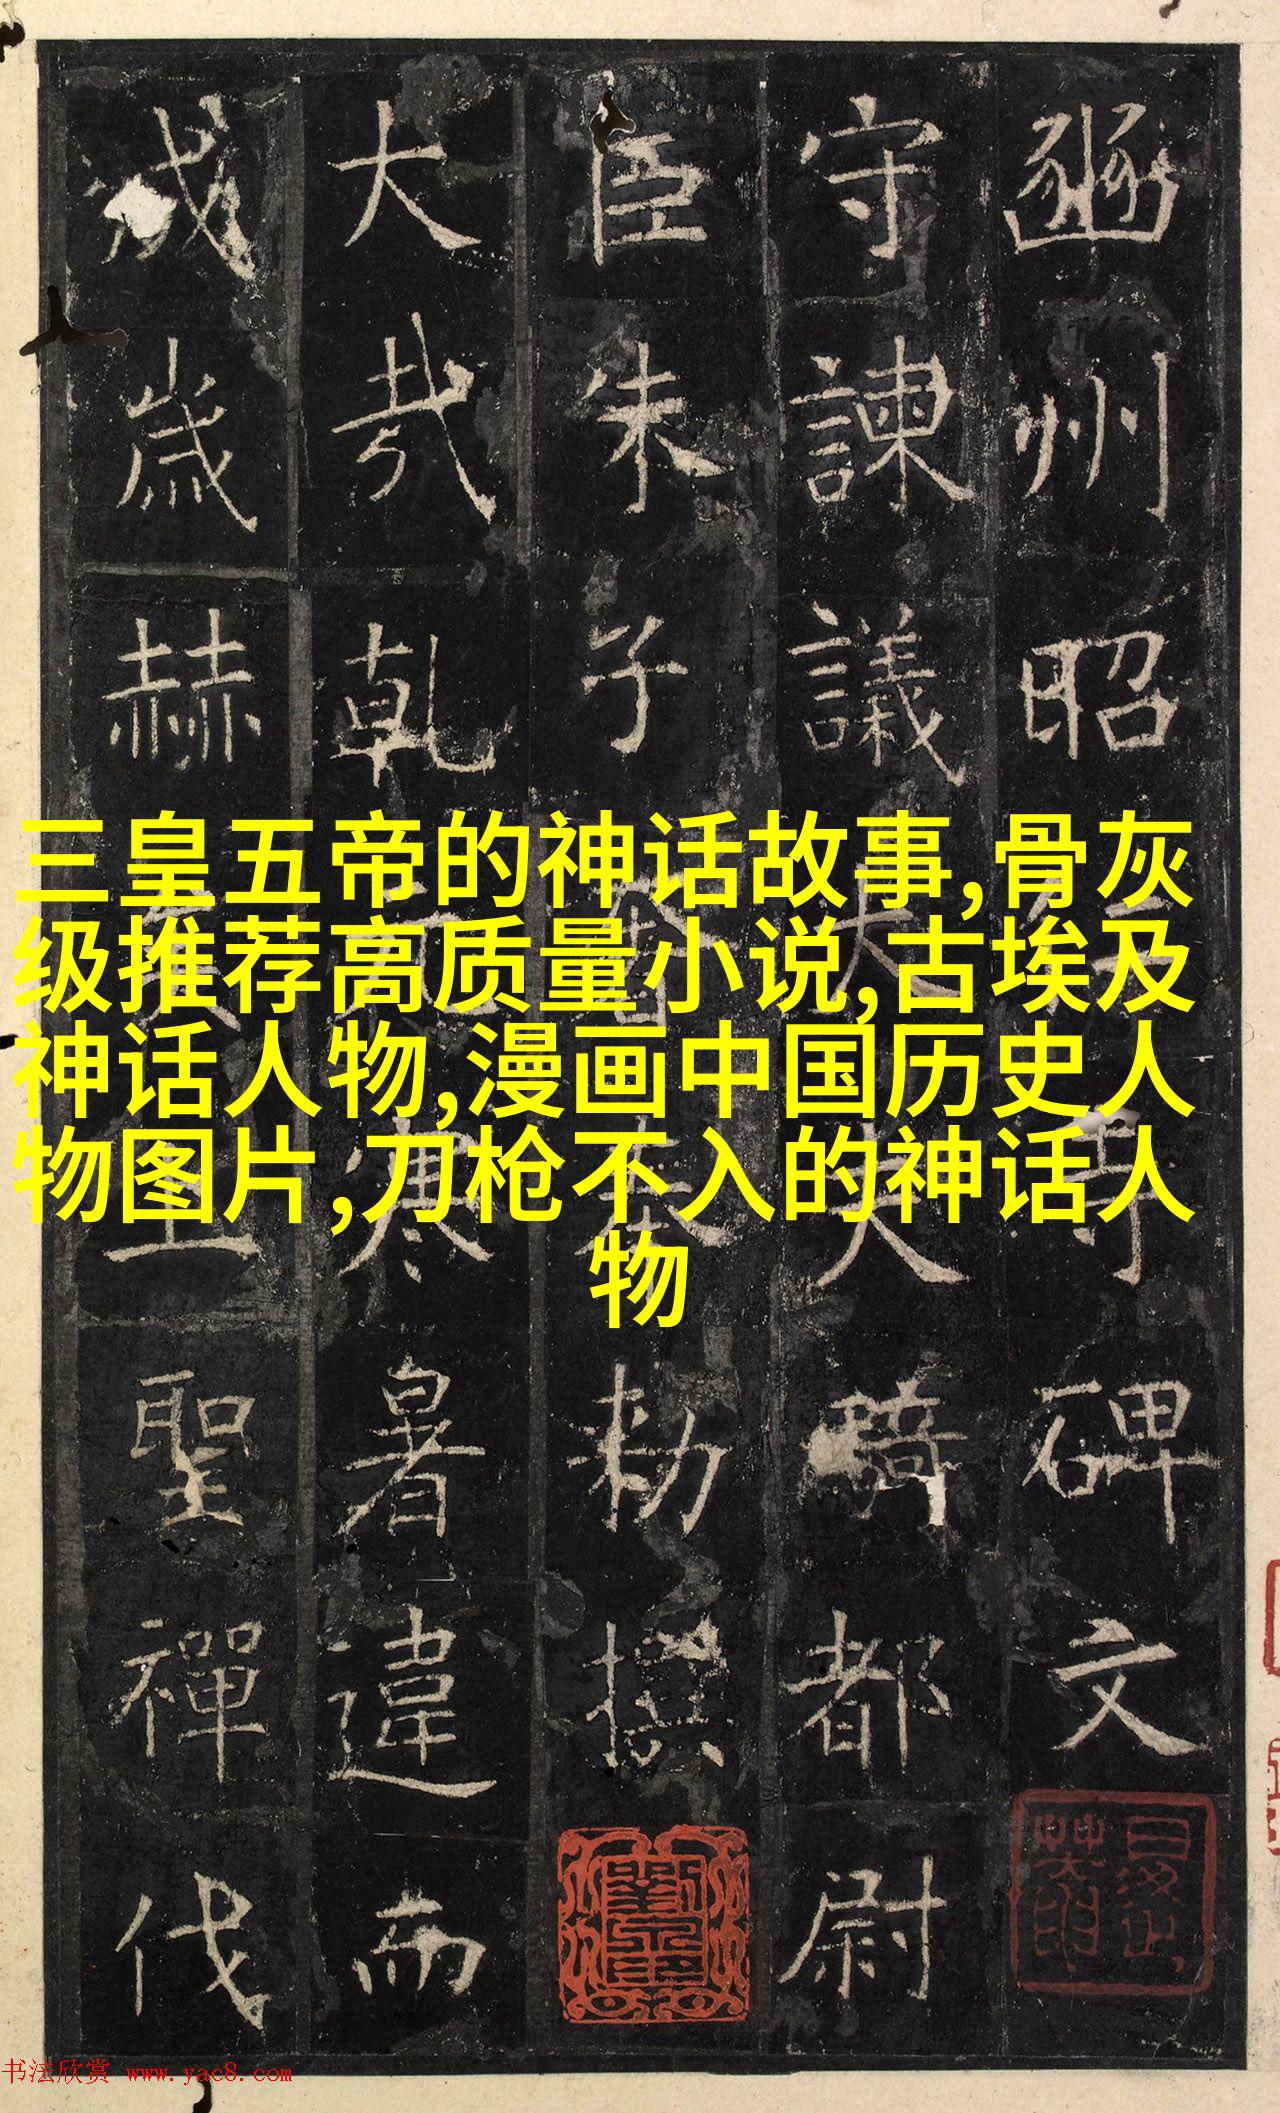 豳州昭仁寺碑文
守諫議大夫騎都尉
臣朱子奢奉勑撰
大哉乾元寒暑違而
成歲赫矣聖禪代
三皇五帝的神话故事,骨灰
级推荐高质量小说,古埃及
神话人物,漫画中国历史人
物图片,刀枪不入的神话人
物
书法欣赏 www.yac8.com